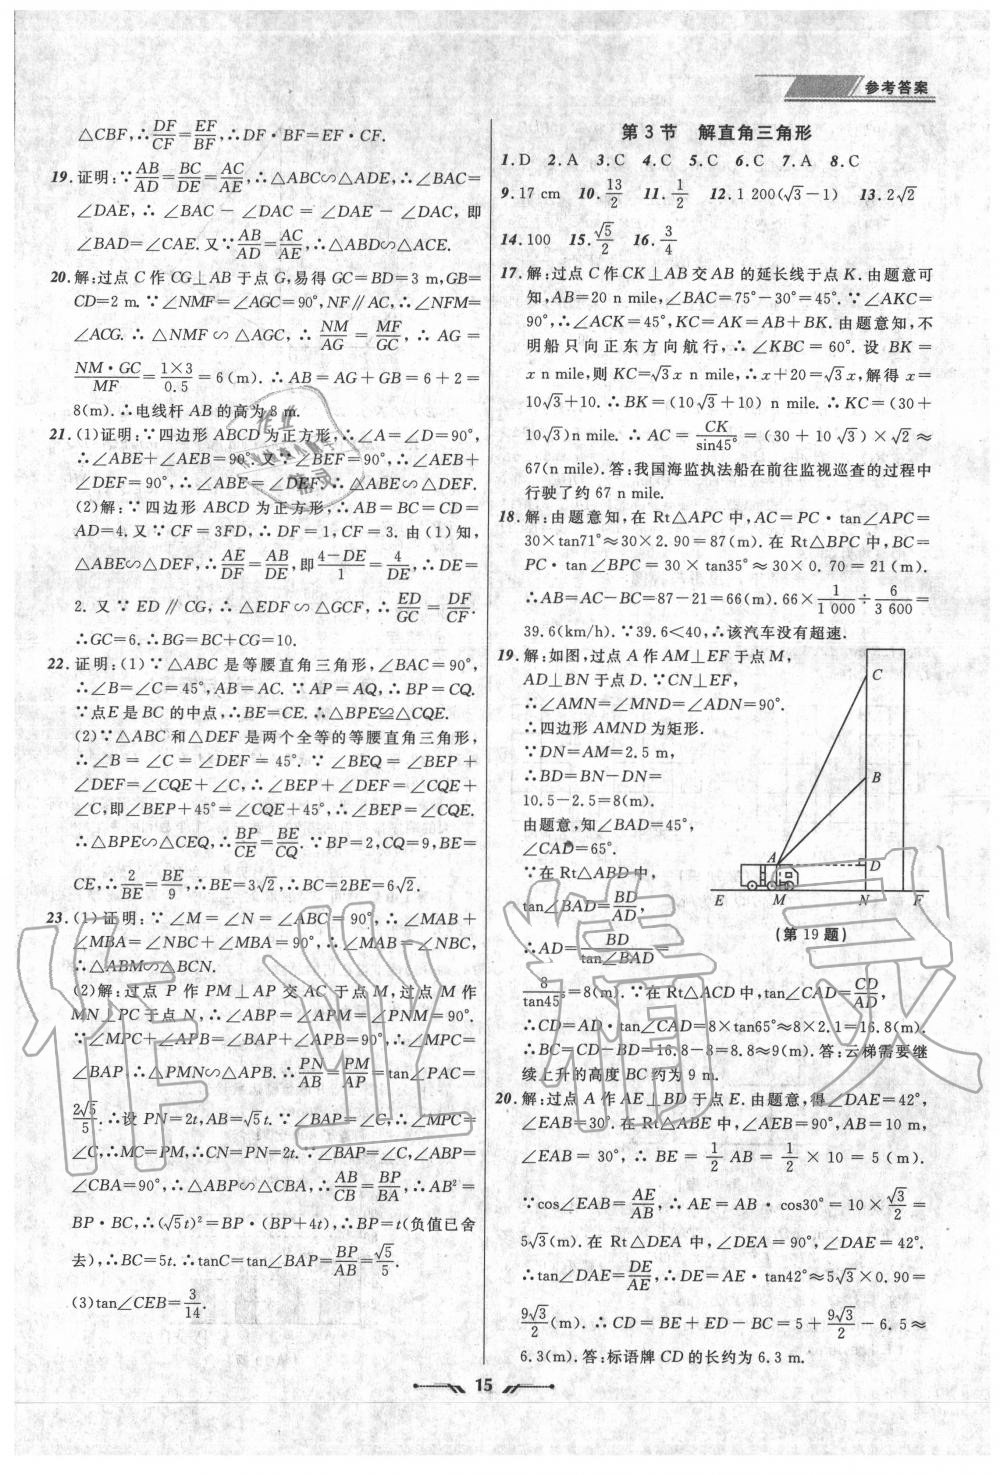 参考答案
△CBF,∴DF/CF=EF/BF,∴DF·BF=EF·CF.
19.证明:∵AB/AD=BC/DE=AC/AE,∴△ABC∽△ADE,∴∠BAC=
∠DAE,∴∠BAC-∠DAC=∠DAE-∠DAC,即
∠BAD=∠CAE.又∵AB/AD=AC/AE,∴△ABD∽△ACE.
20.解:过点C作CG⊥AB于点G,易得GC=BD=3 m,GB=
CD=2 m.∵∠NMF=∠AGC=90°,NF∥AC,∴∠NFM=
∠ACG.∴△NMF∽△AGC,∴NM/AG=MF/GC,∴AG=
NM·GC/MF=1×3/0.5=6(m).∴AB=AG+GB=6+2=
8(m).∴电线杆AB的高为8 m.
21.(1)证明:∵四边形ABCD为正方形,∴∠A=∠D=90°,
∴∠ABE+∠AEB=90°.又∵∠BEF=90°,∴∠AEB+
∠DEF=90°,∴∠ABE=∠DEF.∴△ABE∽△DEF.
(2)解:∵四边形ABCD为正方形,∴AB=BC=CD=
AD=4.又∵CF=3FD,∴DF=1,CF=3.由(1)知,
△ABE∽△DEF,∴AE/DF=AB/DE,即4-DE/1=4/DE,∴DE=
2.又∵ED∥CG,∴△EDF∽△GCF,∴ED/GC=DF/CF.
∴GC=6.∴BG=BC+CG=10.
22.证明:(1)∵△ABC是等腰直角三角形,∠BAC=90°,
∴∠B=∠C=45°,AB=AC.∵AP=AQ,∴BP=CQ.
∵点E是BC的中点,∴BE=CE.∴△BPE≌△CQE.
(2)∵△ABC和△DEF是两个全等的等腰直角三角形,
∴∠B=∠C=∠DEF=45°.∵∠BEQ=∠BEP+
∠DEF=∠CQE+∠C,∴∠BEP+∠DEF=∠CQE+
∠C,即∠BEP+45°=∠CQE+45°,∴∠BEP=∠CQE.
∴△BPE∽△CEQ,∴BP/CE=BE/CQ.∵BP=2,CQ=9,BE=
CE,∴2/BE=BE/9,∴BE=3√2,∴BC=2BE=6√2.
23.(1)证明:∵∠M=∠N=∠ABC=90°,∴∠MAB+
∠MBA=∠NBC+∠MBA=90°,∴∠MAB=∠NBC,
∴△ABM∽△BCN.
(2)解:过点P作PM⊥AP交AC于点M,过点M作
MN⊥PC于点N,∴∠ABP=∠APM=∠PNM=90°.
∵∠MPC+∠APB=∠BAP+∠APB=90°,∴∠MPC=
∠BAP.∴△PMN∽△APB.∴PN/AB=PM/AP=tan∠PAC=
2√5/5.∴设PN=2t,AB=√5t.∵∠BAP=∠C,∴∠MPC=
∠C,∴MC=PM,∴CN=PN=2t.∵∠BAP=∠C,∠ABP=
∠CBA=90°,∴△ABP∽△CBA,∴AB/CB=BP/BA,∴AB²=
BP·BC,∴(√5t)²=BP·(BP+4t),∴BP=t(负值已舍
去),∴BC=5t.∴tanC=tan∠BAP=BP/AB=√5/5.
(3)tan∠CEB=3/14.
第3节 解直角三角形
1.D 2.A 3.C 4.C 5.C 6.C 7.A 8.C
9.17 cm 10.13/2 11.1/2 12.1 200(√3-1) 13.2√2
14.100 15.√5/2 16.3/4
17.解:过点C作CK⊥AB交AB的延长线于点K.由题意可
知,AB=20 n mile,∠BAC=75°-30°=45°.∵∠AKC=
90°,∴∠ACK=45°,KC=AK=AB+BK.由题意知,不
明船只向正东方向航行,∴∠KBC=60°.设BK=
x n mile,则KC=√3x n mile,∴x+20=√3x,解得x=
10√3+10.∴BK=(10√3+10) n mile.∴KC=(30+
10√3)n mile.∴AC=CK/sin45°=(30+10√3)×√2≈
67(n mile).答:我国海监执法船在前往监视巡查的过程中
行驶了约67 n mile.
18.解:由题意知,在Rt△APC中,AC=PC·tan∠APC=
30×tan71°≈30×2.90=87(m).在Rt△BPC中,BC=
PC·tan∠BPC=30×tan35°≈30×0.70=21(m).
∴AB=AC-BC=87-21=66(m).66×1/1 000÷6/3 600=
39.6(km/h).∵39.6<40,∴该汽车没有超速.
19.解:如图,过点A作AM⊥EF于点M,
AD⊥BN于点D.∵CN⊥EF,
∴∠AMN=∠MND=∠ADN=90°.
∴四边形AMND为矩形.
∵DN=AM=2.5 m,
∴BD=BN-DN=
10.5-2.5=8(m).
由题意,知∠BAD=45°,
∠CAD=65°.
∵在Rt△ABD中,
tan∠BAD=BD/AD,
∴AD=BD/tan∠BAD=
8/tan45°=8(m).∵在Rt△ACD中,tan∠CAD=CD/AD,
∴CD=AD·tan∠CAD=8×tan65°≈8×2.1=16.8(m).
∴BC=CD-BD=16.8-8=8.8≈9(m).答:云梯需要继
续上升的高度BC约为9 m.
C
B
A
D
E M N F
(第19题)
20.解:过点A作AE⊥BD于点E.由题意,得∠DAE=42°,
∠EAB=30°.在Rt△ABE中,∠AEB=90°,AB=10 m,
∠EAB=30°,∴BE=1/2AB=1/2×10=5(m).
∵cos∠EAB=AE/AB,∴AE=AB·cos30°=10×√3/2=
5√3(m).在Rt△DEA中,∠DEA=90°,∠DAE=42°.
∴tan∠DAE=DE/AE,∴DE=AE·tan42°≈5√3×0.90=
9√3/2(m).∴CD=BE+ED-BC=5+9√3/2-6.5≈
6.3(m).答:标语牌CD的长约为6.3 m.
15
作业精灵